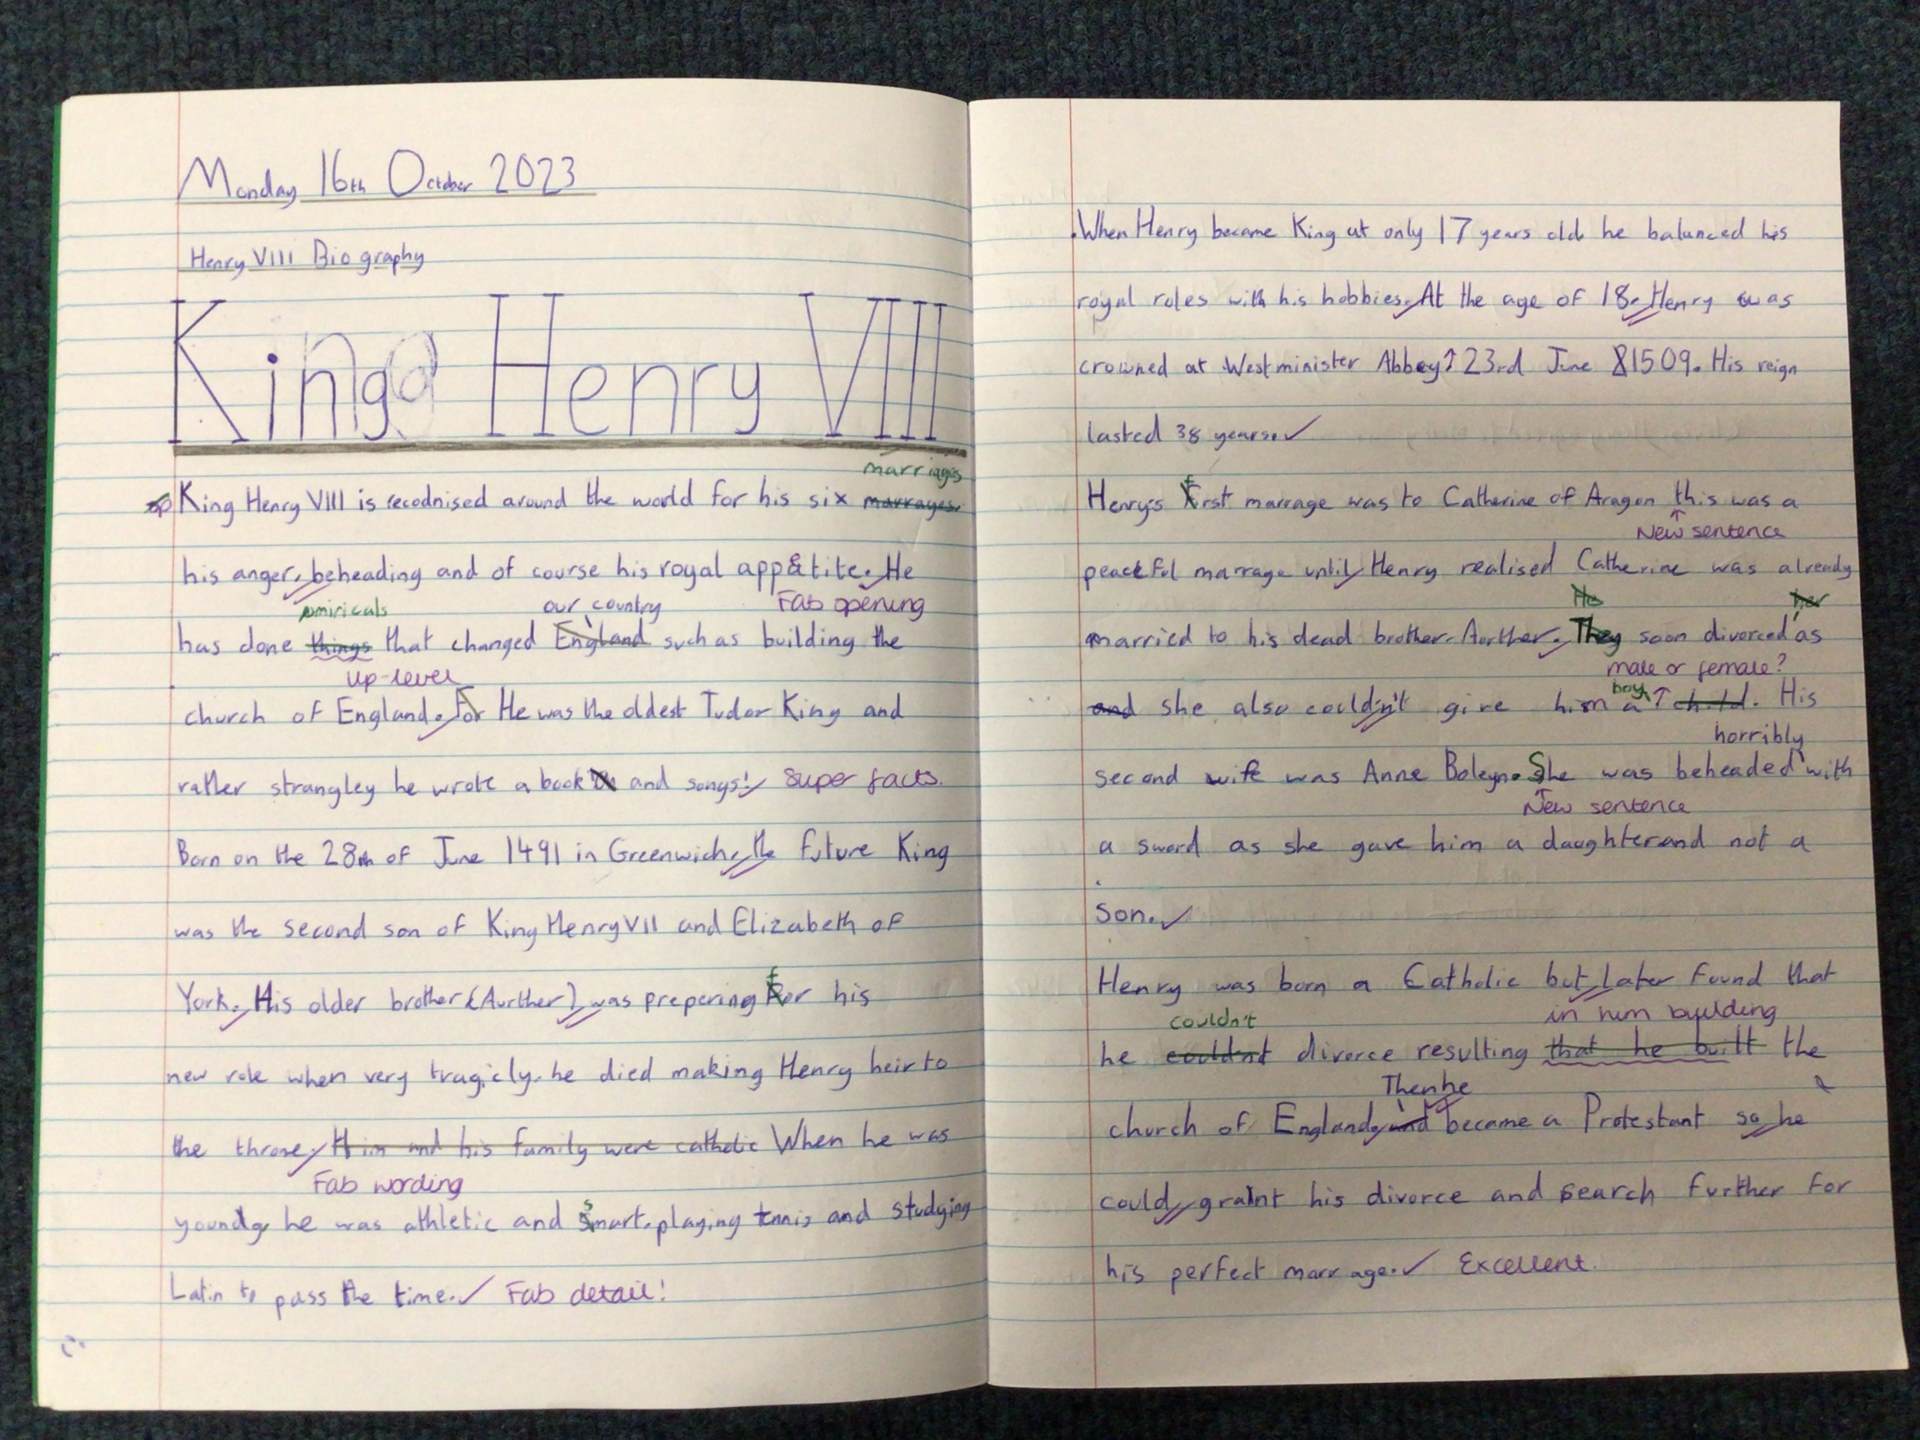 Monday 16th October 2023
Henry VIII Biography
King Henry VIII
marriages
King Henry VIII is recodnised around the world for his six marrages.
his anger, beheading and of course his royal appetite. He
Fab opening
our country
has done things that changed England such as building the
up-level
church of England. For He was the oldest Tudor King and
rather strangley he wrote a book and songs! Super facts.
Born on the 28th of June 1491 in Greenwich, the future King
was the second son of King Henry VII and Elizabeth of
York. His older brother (Aurther), was prepering for his
new role when very tragicly, he died making Henry heir to
the throne. Him and his family were catholic When he was
Fab wording
young he was athletic and smart, playing tennis and studying
Latin to pass the time. Fab detail!
When Henry became King at only 17 years old he balanced his
royal roles with his hobbies. At the age of 18, Henry was
crowned at Westminister Abbey 23rd June 1509. His reign
lasted 38 years.
Henry's first marrage was to Catherine of Aragon this was a
New sentence
peaceful marrage until, Henry realised Catherine was already
He her
married to his dead brother. Aorther. They soon divorced as
male or female?
boy
and she also couldn't give him a child. His
horribly
second wife was Anne Boleyn. She was beheaded with
New sentence
a sword as she gave him a daughter and not a
son.
Henry was born a Catholic but, later found that
couldn't in him building
he couldnt divorce resulting that he built the
Then he
church of England, and became a Protestant so, he
could, graint his divorce and search further for
his perfect marrage. Excellent.